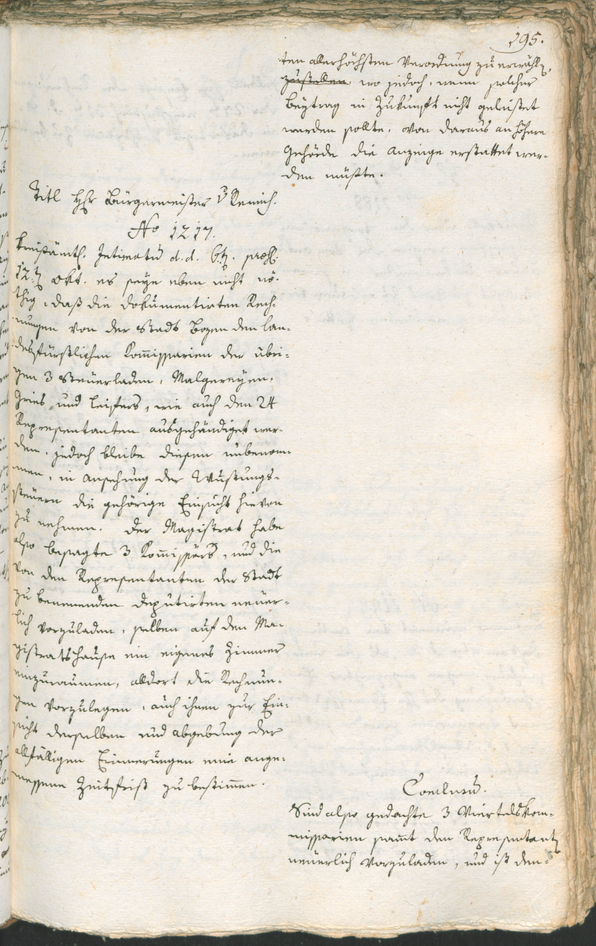 195.
ten allerhöchsten Verordnung zu erwähl
zustellen wo jedoch, wenn solcher
Beytrag in Zukunft nicht geleistet
werden sollte, von daraus an höhere
Behörde die Anzeige erstattet wer-
den müßte.
Titl Hr Bürgermeister v Remich.
No 1217.
Kreisämtl. Intimatum d. d. 6t. präs.
12t Okt. es seye eben nicht nö-
thig, daß die dokumentirten Rech-
nungen von der Stadt Bozen den lan-
desfürstlichen Kommissarien der übri-
gen 3 Steuerladen, Malgreyen,
Gries, und Leifers, wie auch den 24
Representanten ausgehändiget wer-
den, jedoch bleibe diesen unbenom-
men, in Ansehung der Wustungs-
steuern die gehörige Einsicht hievon
zu nehmen. Der Magistrat habe
also besagte 3 Kommissärs, und die
von den Representanten der Stadt
zu benennenden Deputirten neuer-
lich vorzuladen, selben auf dem Ma-
gistratshause ein eigenes Zimmer
einzuraumen, alldort die Rechnun-
gen vorzulegen, auch ihnen zur Ein-
sicht derselben und abgebung der
allfälligen Erinnerungen eine ange-
messene Zeitfrist zu bestimmen.
Conclusum.
Sind also gedachte 3 Viertelskom-
missarien samt den Representanten
neuerlich vorzuladen, und ist den-